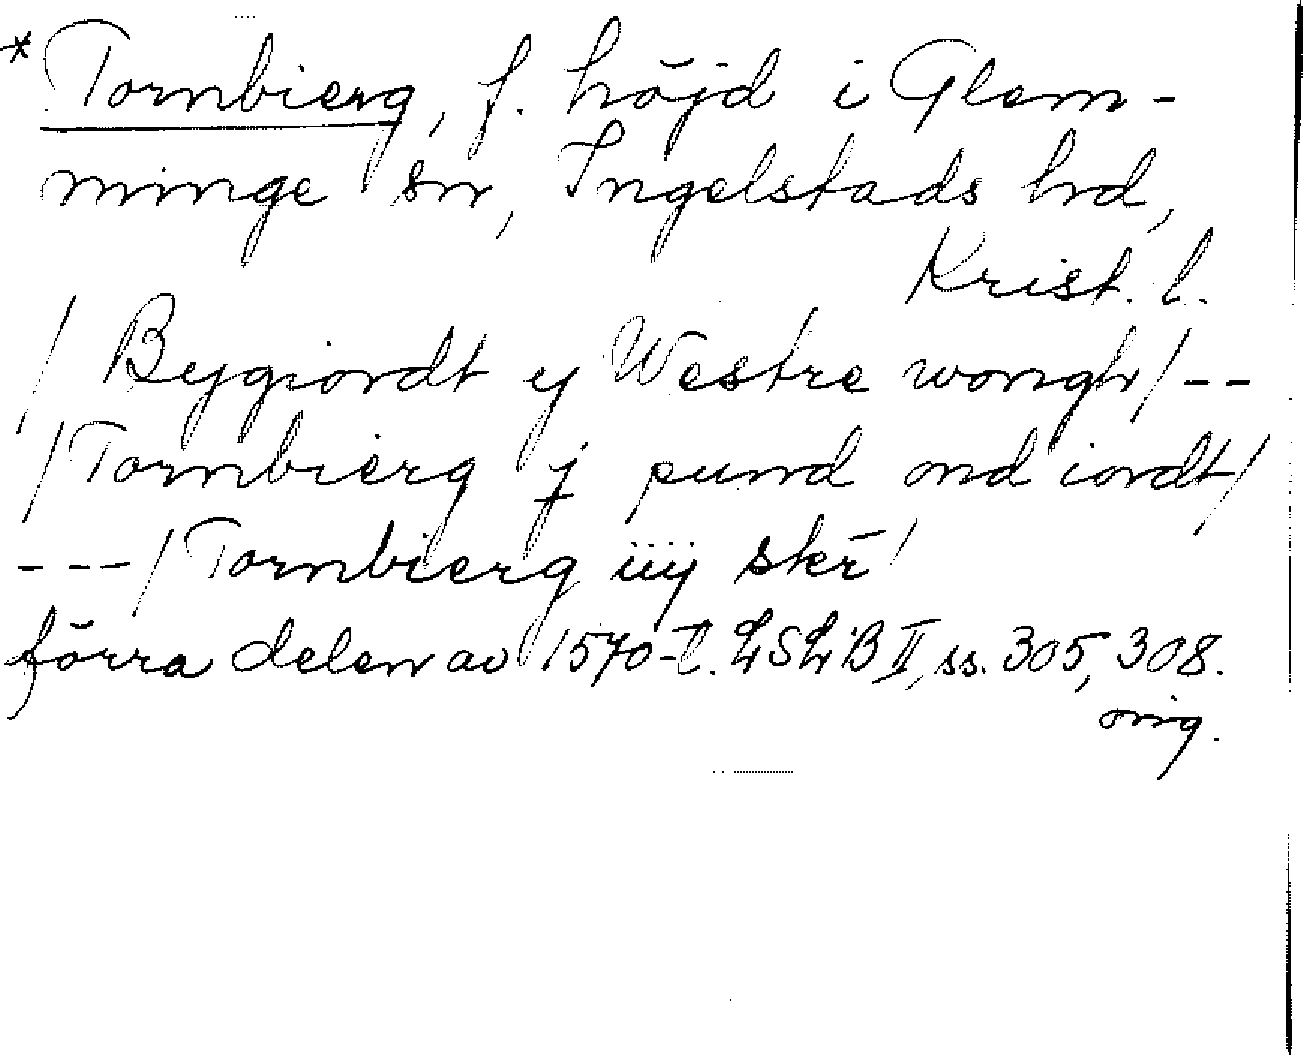 * Tornbierg, f. höjd i Glem-
minge sn, Ingelstads hd,
Krist. l.
/ Bygiordt y Westre wongh / --
/ Tornbierg j pund ond iordt /
--- / Tornbierg iiij skr /
förra delen av 1570-t. LSLB II, ss. 305, 308.
orig.